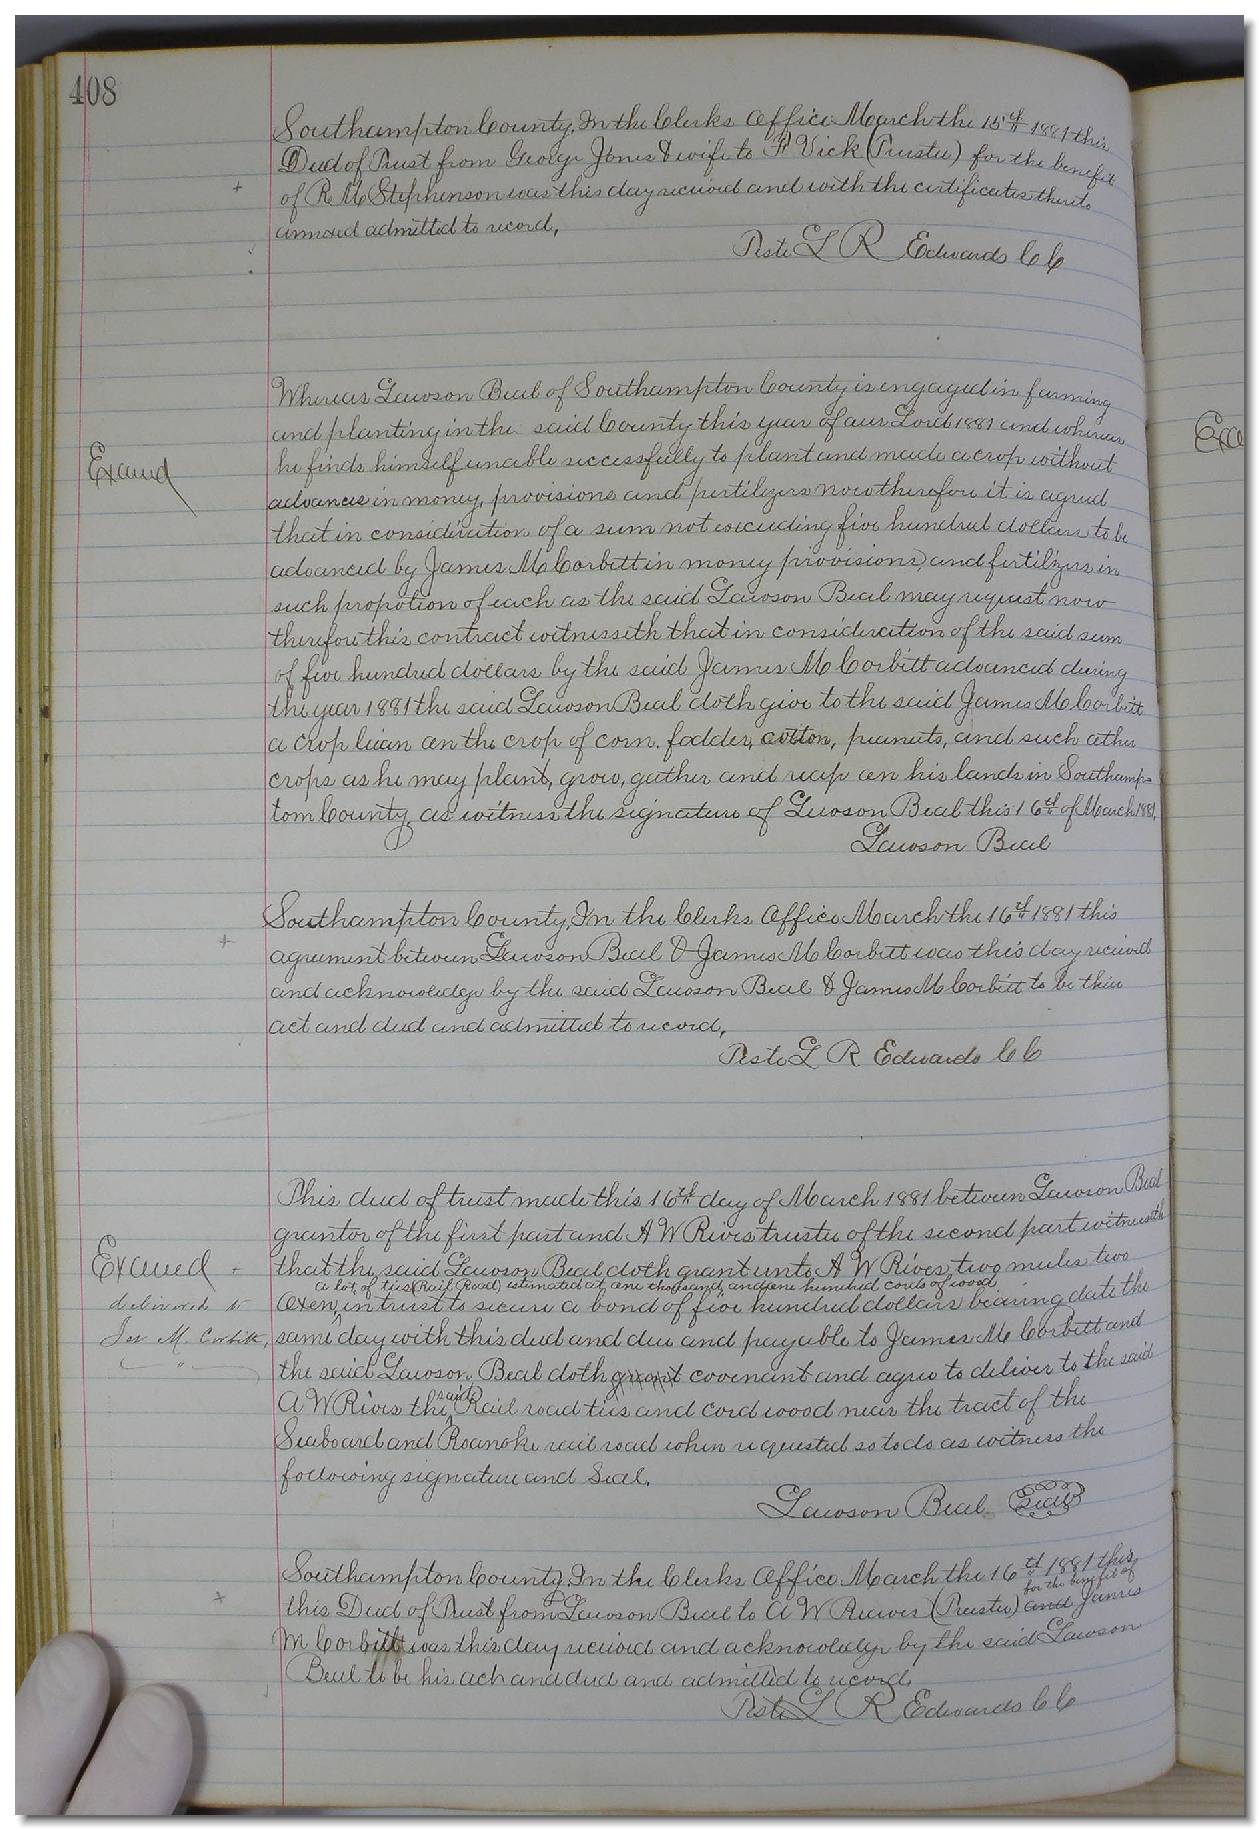 408
Southampton County, In the Clerks Office March the 15th 1881 this
Deed of Trust from George Jones & wife to F Vick (Trustee) for the benefit
of R M Stephenson was this day received and with the certificates thereto
annexed admitted to record,
Teste L R Edwards C C
Whereas Lawson Beal of Southampton County is engaged in farming
and planting in the said County this year of our Lord 1881 and whereas
Examd
he finds himself unable successfully to plant and made a crop without
advances in money, provisions and pertilizers now therefore it is agreed
that in consideration of a sum not exceeding five hundred dollars to be
advanced by James M Corbett in money provisions, and fertilizers in
such propotion of each as the said Lawson Beal may request now
therefore this contract witnesseth that in consideration of the said sum
of five hundred dollars by the said James M Corbitt advanced during
the year 1881 the said Lawson Beal doth give to the said James M Corbitt
a crop liean on the crop of corn. fodder, cotton, peanuts, and such other
crops as he may plant, grow, gather and reap on his lands in Southamp-
tom County, as witness the signature of Lawson Beal this 16th of March 1881,
Lawson Beal
Southampton County, In the Clerks Office March the 16th 1881 this
agreement between Lawson Beal & James M Corbett was this day received
and acknowledge by the said Lawson Beal & James M Corbitt to be their
act and deed and admitted to record,
Teste L R Edwards C C
This deed of trust made this 16th day of March 1881 between Lawson Beal
grantor of the first part and A W Rives trustee of the second part witnesseth
Examd
that the said Lawson Beal doth grant unto A W Rives two mules two
a lot of ties (Rail Road) estimated at one thousand, and one hundred cords of wood
oxen, in trust to secure a bond of five hundred dollars bearing date the
delivered to
same day with this deed and due and payable to James M Corbett and
Jas M. Corbitt,
the said Lawson Beal doth grant covenant and agree to deliver to the said
A W Rives the said Rail road ties and cord wood near the tract of the
Seaboard and Roanoke rail road when requested so to do as witness the
following signature and Seal.
Lawson Beal Seal
Southampton County, In the Clerks Office March the 16th 1881 this
for the benefit of
this Deed of Trust from Lawson Beal to A W Reeves (Trustee) and James
M Corbitt was this day received and acknowledge by the said Lawson
Beal to be his ach and deed and admitted to record,
Teste L R Edwards C C
Exa